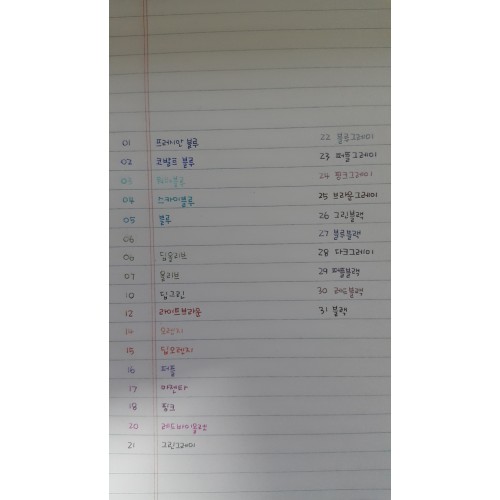 01 프러시안 블루
02 코발트 블루
03 블루
04 스카이블루
05 블루
06
06 딥올리브
07 올리브
10 딥그린
12 라이트브라운
14 오렌지
15 딥오렌지
16 퍼플
17 마젠타
18 핑크
20 레드바이올렛
21 그린그레이
22 블루그레이
23 퍼플그레이
24 핑크그레이
25 브라운그레이
26 그린블랙
27 블루블랙
28 다크그레이
29 퍼플블랙
30 레드블랙
31 블랙